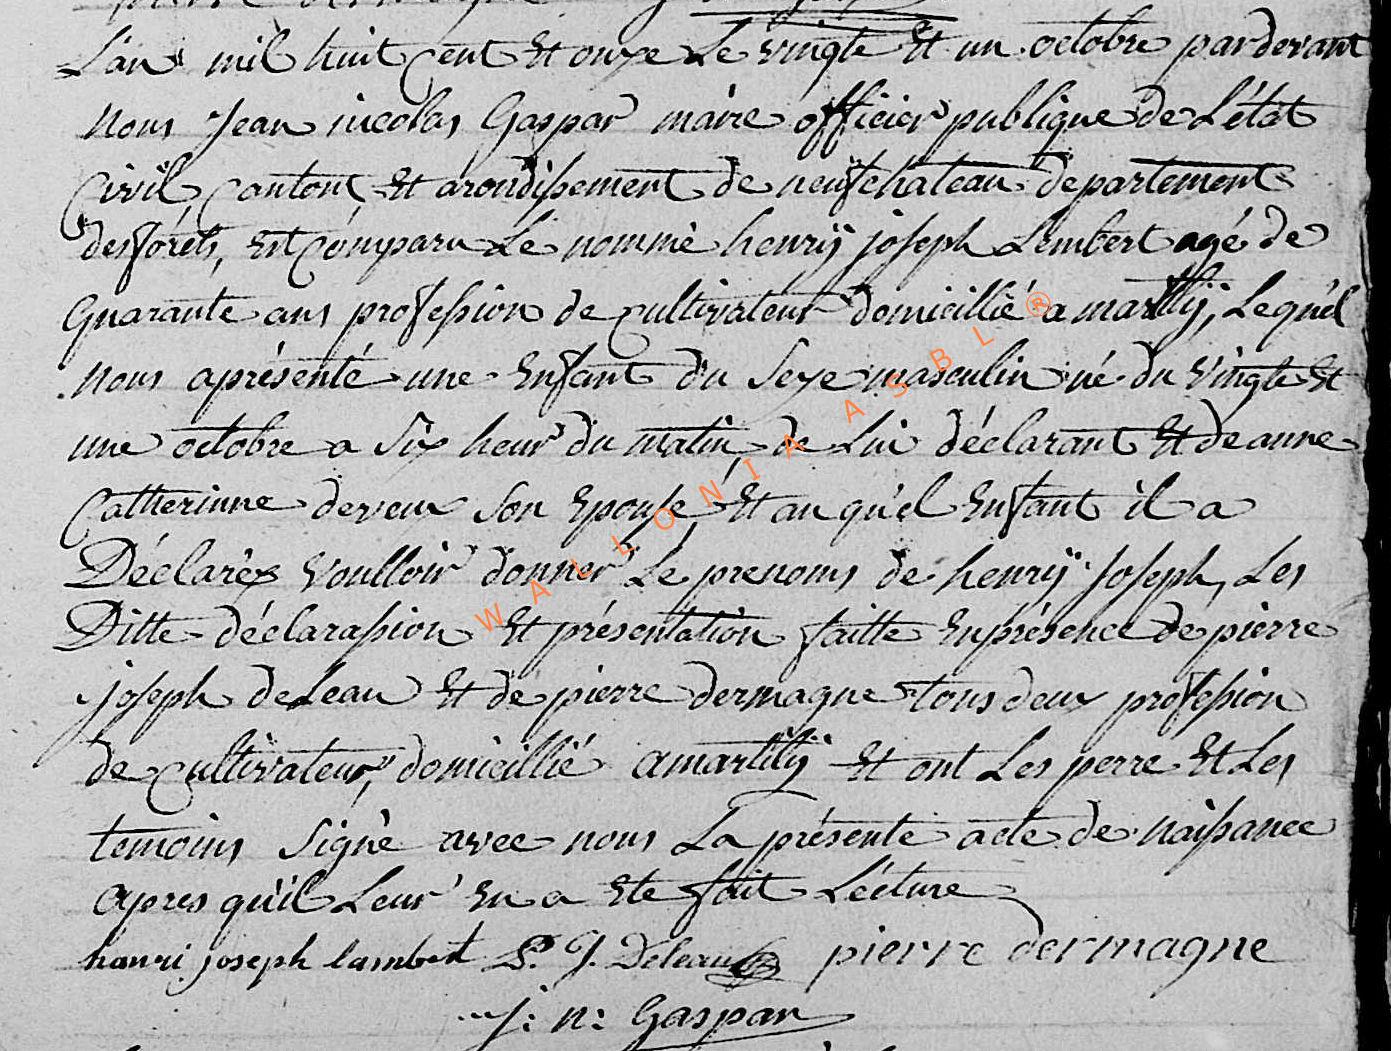 L'an mil huit cent Et onze Le vingte Et un octobre pardevant
Nous Jean nicolas Gaspar maire officier publique de L'état
Civil Canton Et arondissement de neufchateau departement
des forêts, Est Comparu Le nommé henrÿ joseph Lembert agé de
quarante ans profession de Cultivateur domicillié a martillÿ, Lequel
Nous aprésenté une Enfant du Sexe masculin né du Vingte Et
une octobre a Six heur du matin de Lui déclarant Et de anne
Catherinne deveux Son Epouse, Et au quel Enfant il a
Déclarêz Voulloir donner Le prenoms de henrÿ Joseph, Les
Ditte déclarassion Et présentation faitte Enprésence de pierre
joseph deLeau Et de pierre dermagne tous deux profession
de Cultivateur, domicillié amartillÿ Et ont Les perre Et Les
temoins Signé avec nous La présente acte de Naissance
apres qu'il Leur En a Ete fait Lécture
hanri joseph lambert P. J. Deleau pierre dermagne
j: n: Gaspar
WALLONIA ASBL ®